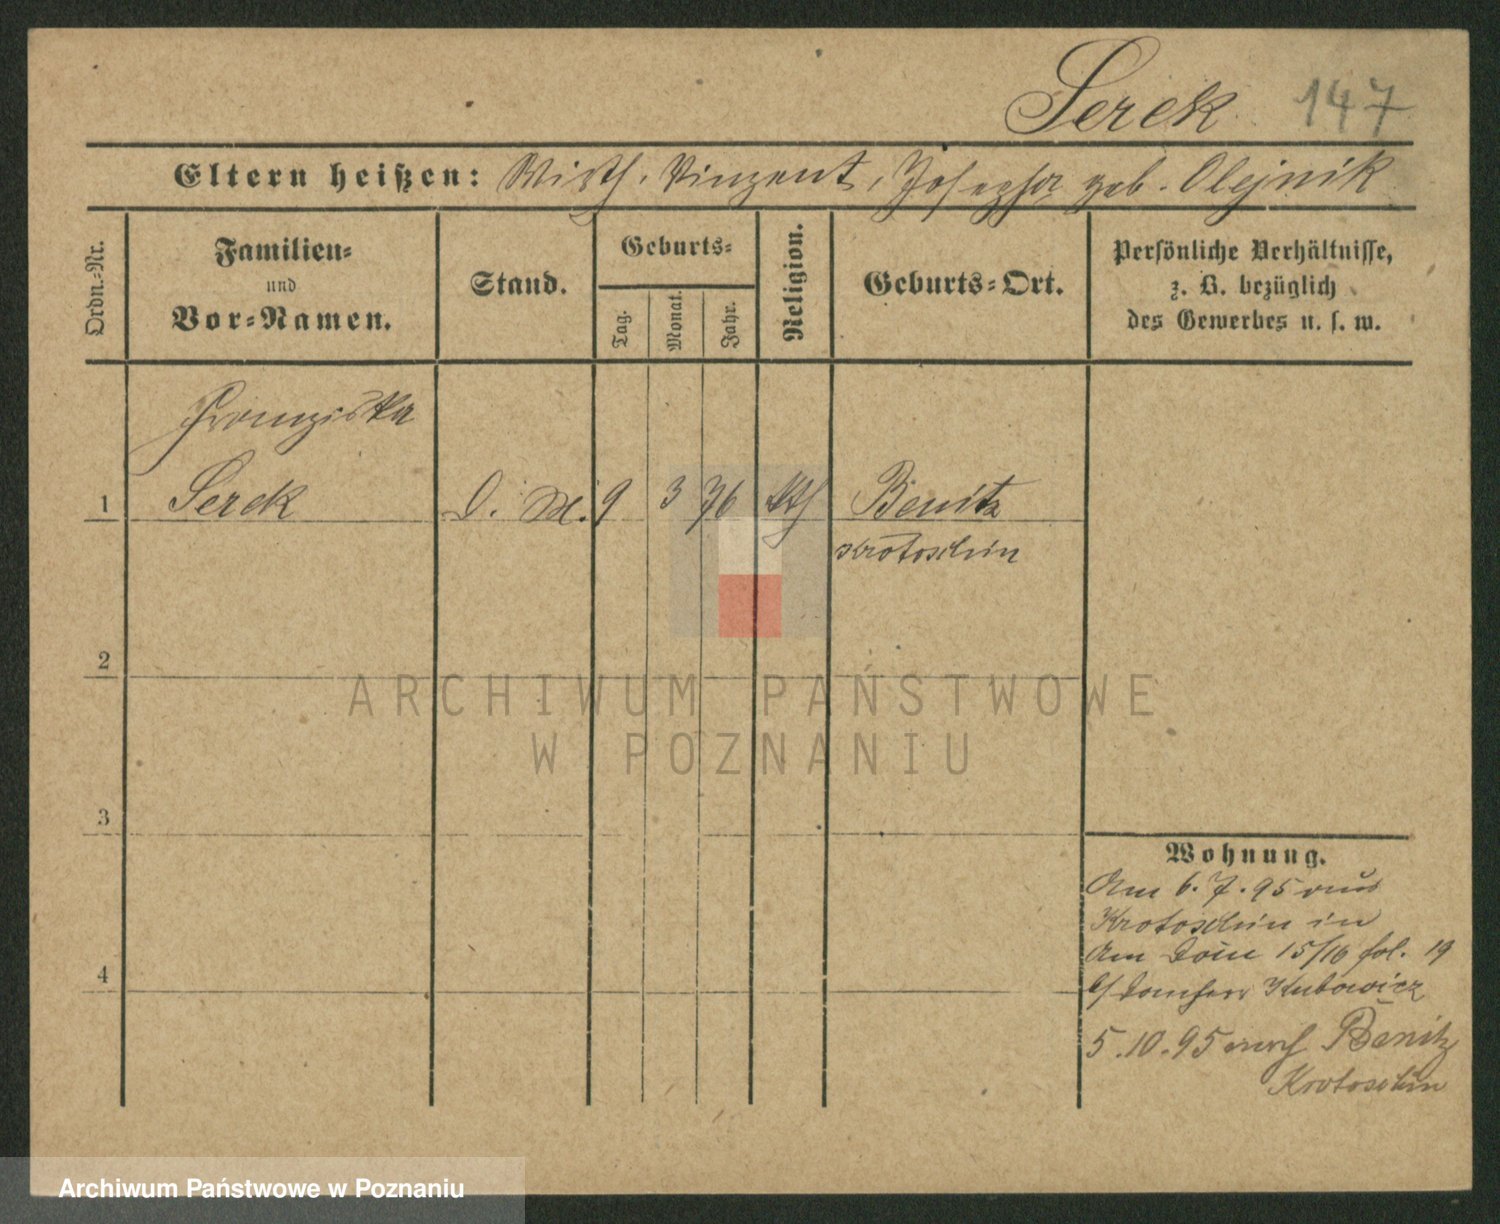 Serek 147
Eltern heißen: Wirth. Vinzent, Josepha geb. Olejnik
Ordn.-Nr.
Familien-
und
Vor-Namen.
Stand.
Geburts-
Tag.
Monat.
Jahr.
Religion.
Geburts-Ort.
Persönliche Verhältnisse,
z. B. bezüglich
des Gewerbes u. s. w.
Franziska
1 Serek D. M. 9 3 76 kth Benitz
Krotoschin
2
3
4
Wohnung.
Am 6. 7. 95 aus
Krotoschin in
Am Dom 15/16 fol. 19
b/ Domherr Kubowicz
5.10.95 nach Benitz
Krotoschin
ARCHIWUM PAŃSTWOWE
W POZNANIU
Archiwum Państwowe w Poznaniu